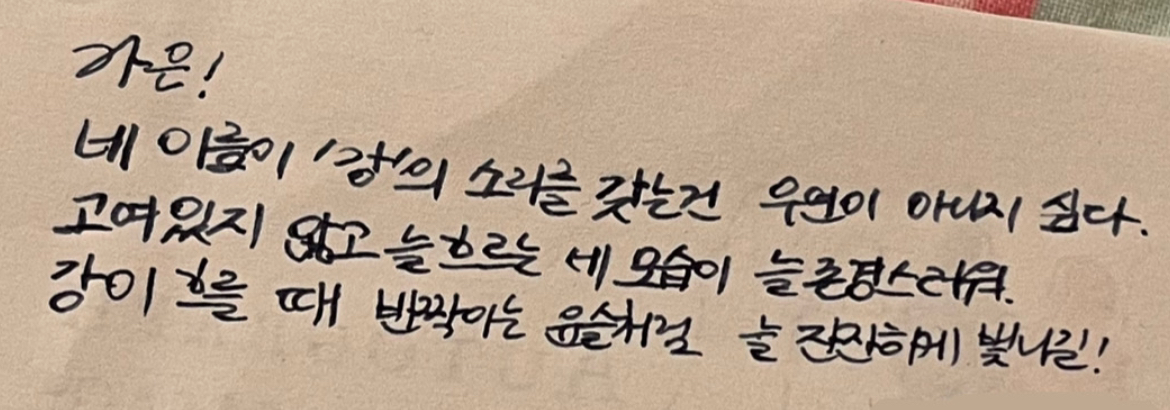 가은!
네 이름이 '강'의 소리를 갖는건 우연이 아니지 싶다.
고여있지 않고 늘 흐르는 네 모습이 늘 존경스러워.
강이 흐를 때 반짝이는 윤슬처럼 늘 잔잔하게 빛나길!